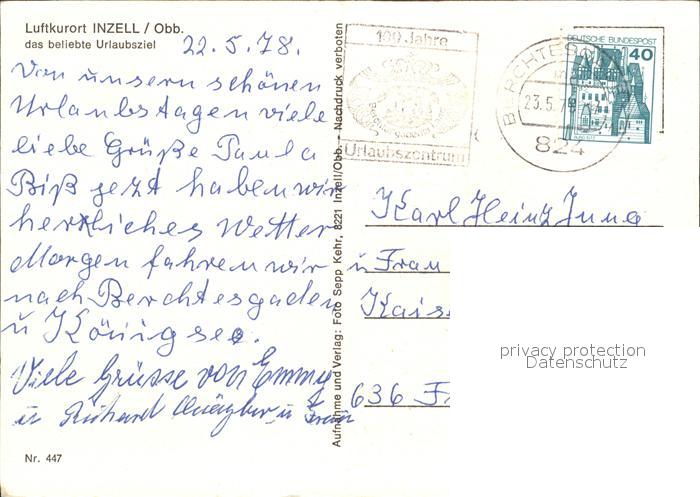 Luftkurort INZELL / Obb.
das beliebte Urlaubsziel
22.5.78.
Von unsern schönen
Urlaubstagen viele
liebe Grüße Paula
Biß jezt haben wir
herrliches Wetter
Morgen fahren wir
nach Berchtesgaden
u Königsee.
Viele Grüsse von Emmy
u Richard u Frau
Nr. 447
Aufnahme und Verlag: Foto Sepp Kehr, 8221 Inzell/Obb. — Nachdruck verboten
100 Jahre
Urlaubszentrum
BERCHTESGADEN
23.5.78
824
DEUTSCHE BUNDESPOST
40
Karl Heinz
u Frau
Kais
636 F
privacy protection
Datenschutz